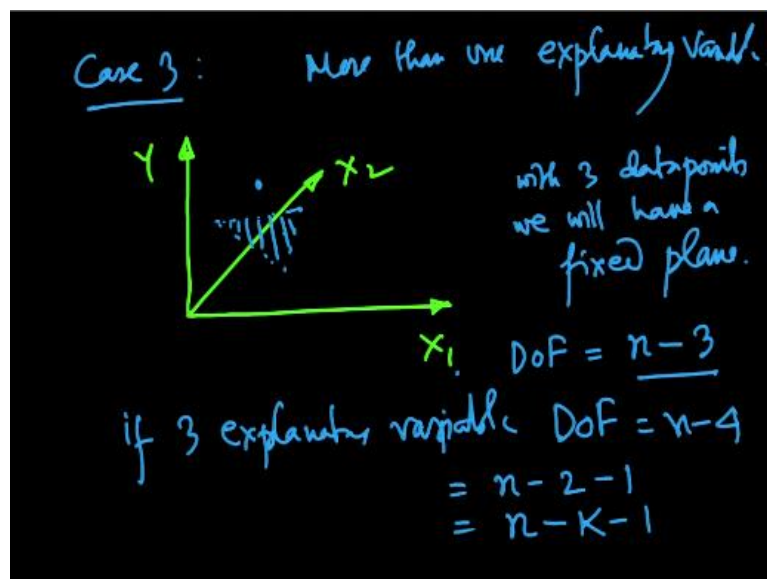 Case 3 : More than one explanatory Variabl.
Y
X2
with 3 datapoints
we will have a
fixed plane.
X1
DoF = n - 3
if 3 explanatory variable DoF = n-4
= n - 2 - 1
= n - K - 1